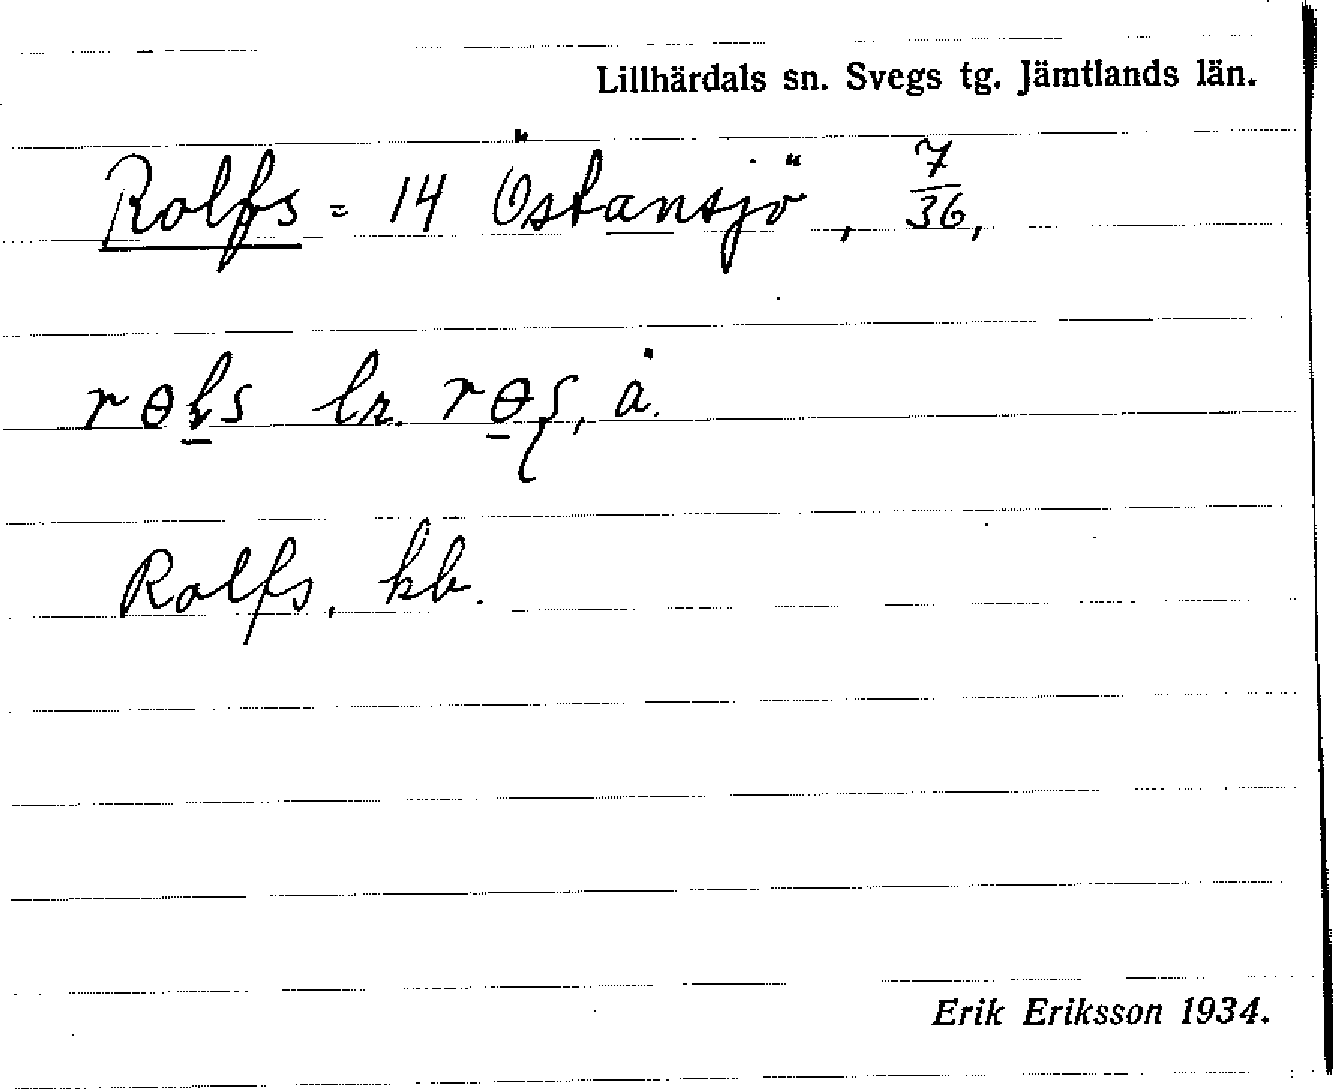 Lillhärdals sn. Svegs tg. Jämtlands län.
Rolfs = 14 Östansjö, 7/36,
rɵls l. rɵʂ, å.
Rolfs, kb.
Erik Eriksson 1934.